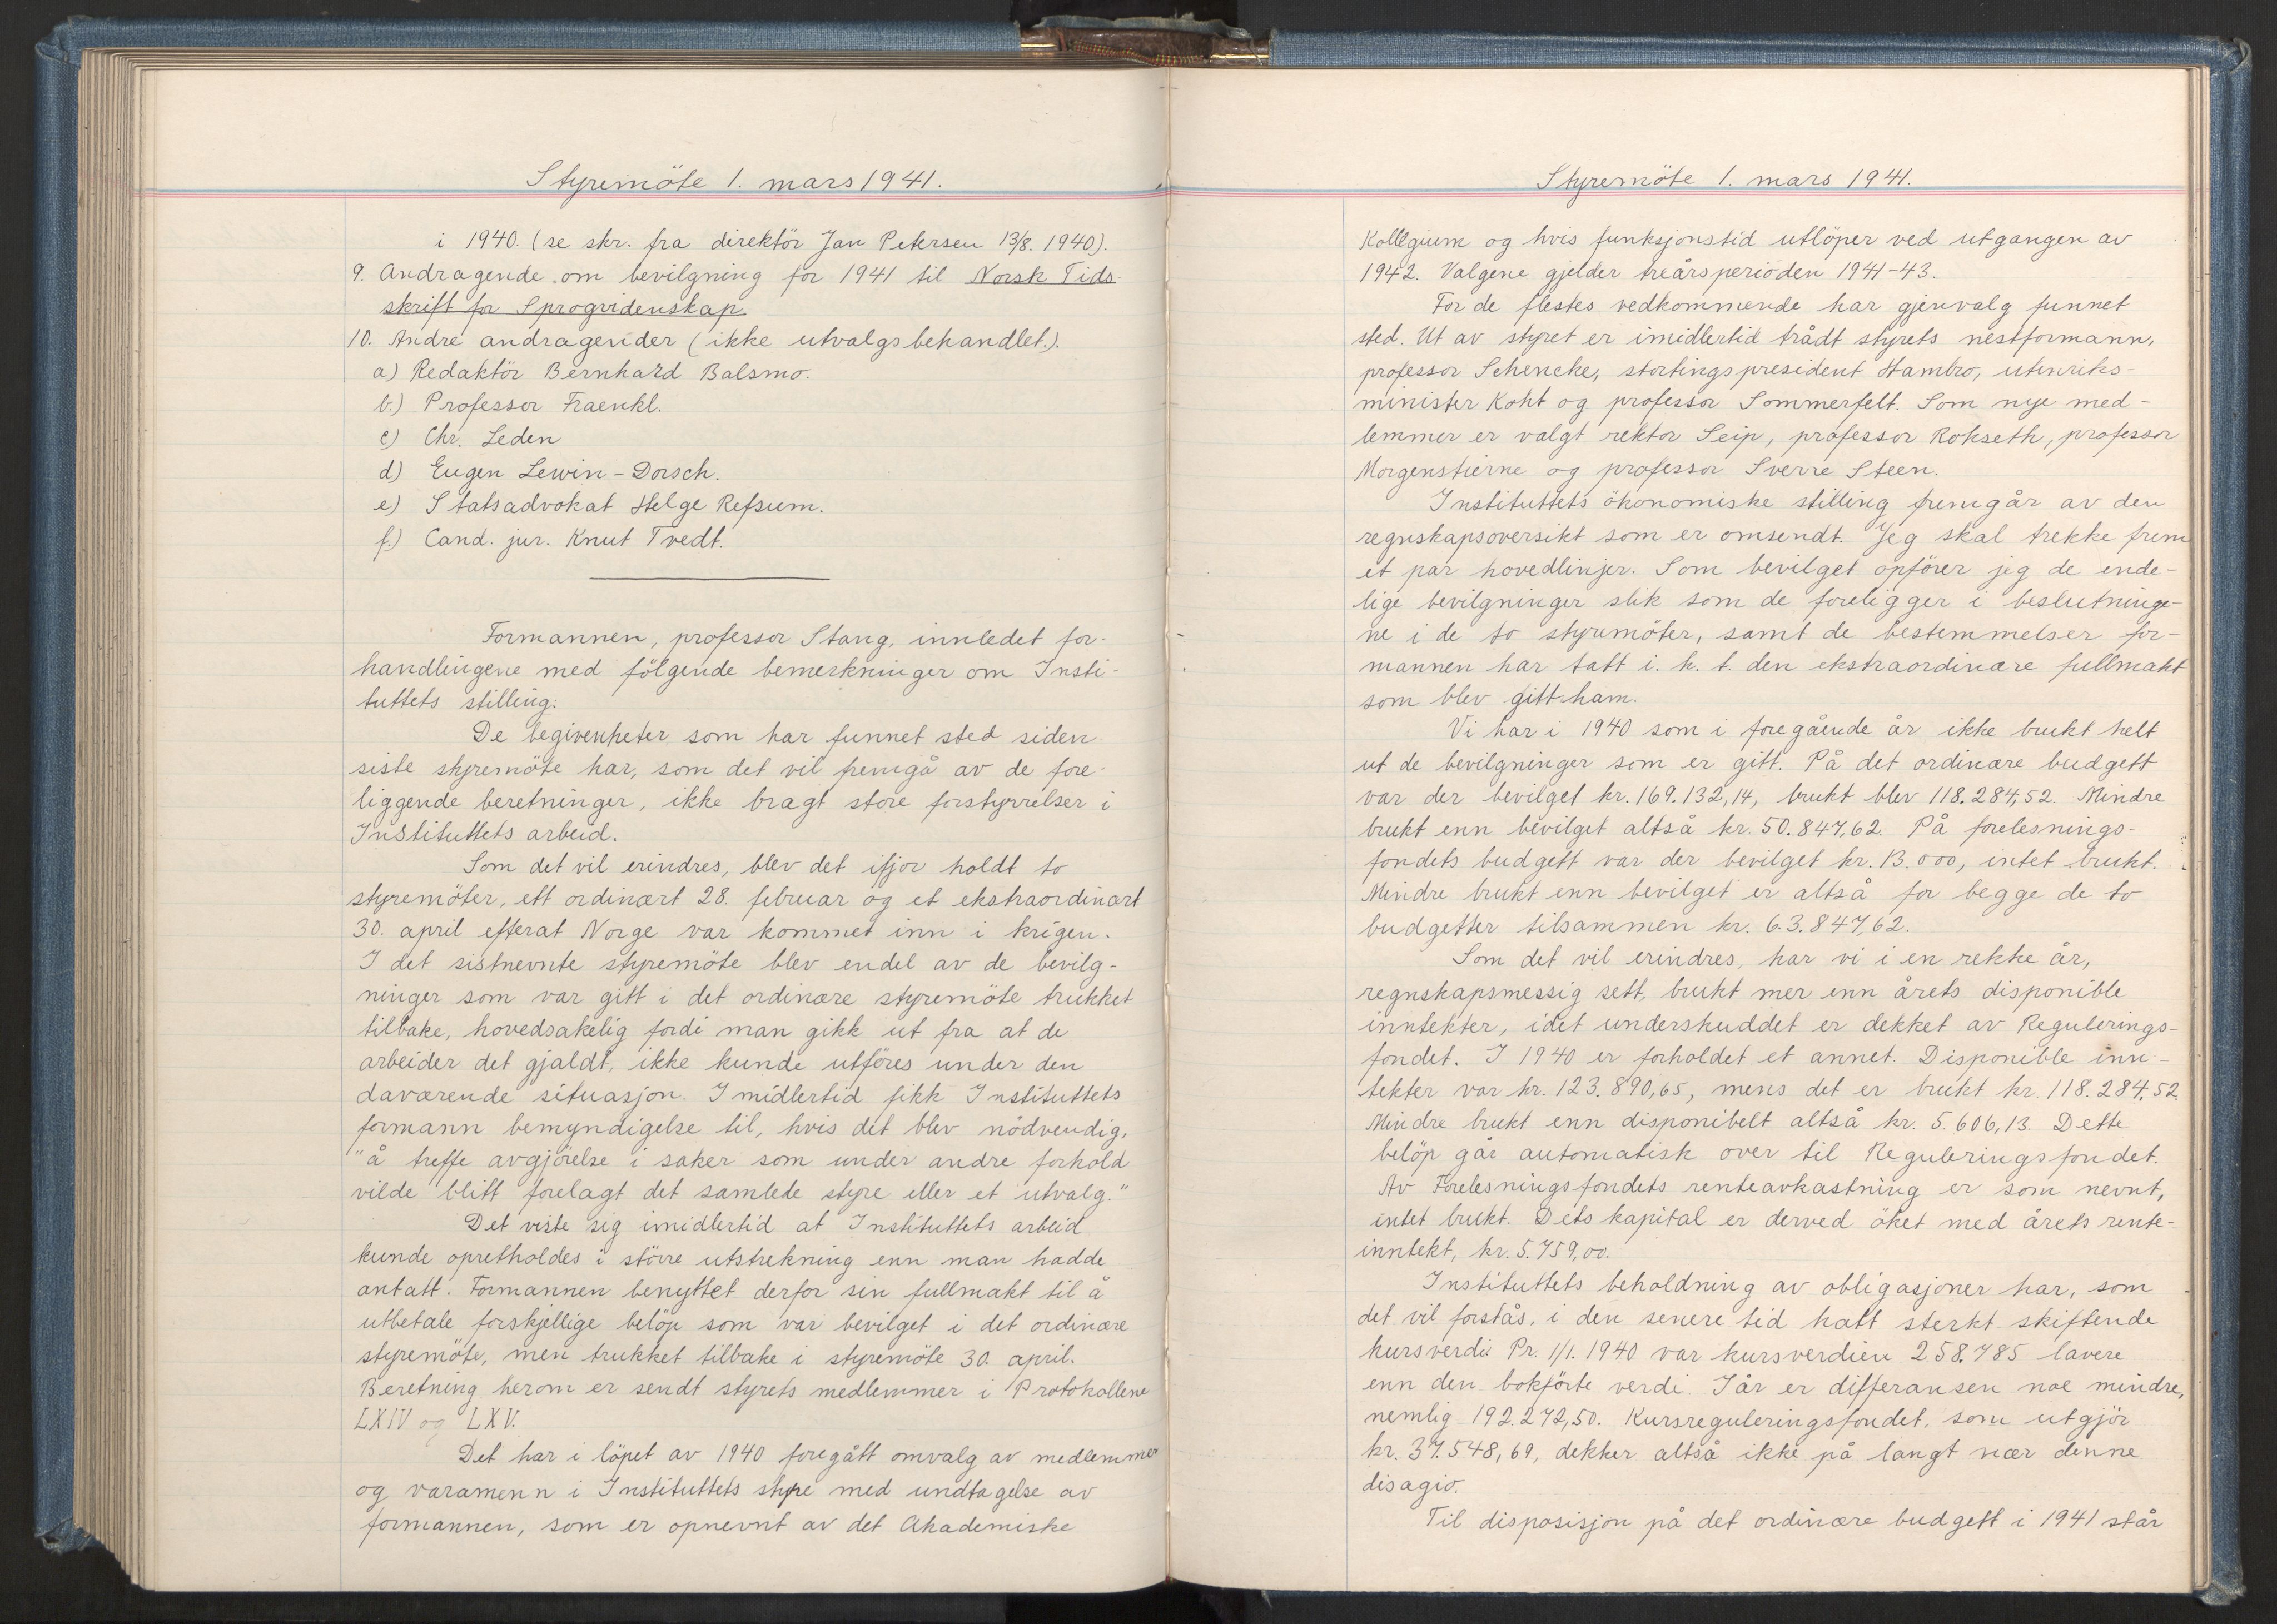 Styremöte 1. mars 1941.
i 1940. (se skr. fra direktör Jan Petersen 13/8. 1940).
9. Andragende om bevilgning for 1941 til Norsk Tids-
skrift for Sprogvidenskap.
10. Andre andragender (ikke utvalgsbehandlet.).
a) Redaktör Bernhard Balsmo.
b.) Professor Fraenkl.
c) Chr. Leden
d) Eugen Lewin-Dorsch.
e) Statsadvokat Helge Refsum.
f.) Cand. jur. Knut Tvedt.
Formannen, professor Stang, innledet for-
handlingene med fölgende bemerkninger om Insti-
tuttets stilling.
De begivenheter som har funnet sted siden
siste styremöte har, som det vil fremgå av de fore-
liggende beretninger, ikke bragt store forstyrrelser i
Instituttets arbeid.
Som det vil erindres, blev det ifjor holdt to
styremöter, ett ordinært 28. februar og et ekstraordinært
30. april efterat Norge var kommet inn i krigen.
I det sistnevnte styremöte blev endel av de bevilg-
ninger som var gitt i det ordinære styremöte trukket
tilbake, hovedsakelig fordi man gikk ut fra at de
arbeider det gjaldt, ikke kunde utföres under den
daværende situasjon. Imidlertid fikk Instituttets
formann bemyndigelse til, hvis det blev nödvendig,
"å treffe avgjörelse i saker som under andre forhold
vilde blitt forelagt det samlede styre eller et utvalg."
Det viste sig imidlertid at Instituttets arbeid
kunde opretholdes i större utstrekning enn man hadde
antatt. Formannen benyttet derfor sin fullmakt til å
utbetale forskjellige belöp som var bevilget i det ordinære
styremöte, men trukket tilbake i styremöte 30. april.
Beretning herom er sendt styrets medlemmer i Protokollene
LXIV og LXV.
Det har i löpet av 1940 foregått omvalg av medlemmer
og varamenn i Instituttets styre med undtagelse av
formannen, som er opnevnt av det Akademiske
Styremöte 1. mars 1941.
Kollegium og hvis funksjonstid utlöper ved utgangen av
1942. Valgene gjelder treårsperioden 1941-43.
For de flestes vedkommende har gjenvalg funnet
sted. Ut av styret er imidlertid trådt styrets nestformann,
professor Schencke, stortingspresident Hambro, utenriks-
minister Koht og professor Sommerfelt. Som nye med-
lemmer er valgt rektor Seip, professor Rokseth, professor
Morgenstierne og professor Sverre Steen.
Instituttets ökonomiske stilling fremgår av den
regnskapsoversikt som er omsendt. Jeg skal trekke frem
et par hovedlinjer. Som bevilget opförer jeg de ende-
lige bevilgninger slik som de foreligger i beslutninge-
ne i de to styremöter, samt de bestemmelser for-
mannen har tatt i. h. t. den ekstraordinære fullmakt
som blev gitt ham.
Vi har i 1940 som i foregående år ikke brukt helt
ut de bevilgninger som er gitt. På det ordinære budgett
var der bevilget kr. 169.132,14, brukt blev 118.284,52. Mindre
brukt enn bevilget altså kr. 50.847,62. På forelesnings-
fondets budgett var der bevilget kr. 13.000, intet brukt.
Mindre brukt enn bevilget er altså for begge de to
budgetter tilsammen kr. 63.847,62.
Som det vil erindres, har vi i en rekke år,
regnskapsmessig sett, brukt mer enn årets disponible
inntekter, idet underskuddet er dekket av Regulerings-
fondet. I 1940 er forholdet et annet. Disponible inn-
tekter var kr. 123.890,65, mens det er brukt kr. 118.284,52.
Mindre brukt enn disponibelt altså kr. 5.606,13. Dette
belöp går automatisk over til Reguleringsfondet.
Av Forelesningsfondets renteavkastning er som nevnt,
intet brukt. Dets kapital er derved öket med årets rente-
inntekt, kr. 5.759,00.
Instituttets beholdning av obligasjoner har, som
det vil forstås, i den senere tid hatt sterkt skiftende
kursverdi. Pr. 1/1. 1940 var kursverdien 258.785 lavere
enn den bokförte verdi. I år er differansen noe mindre,
nemlig 192.272,50. Kursreguleringsfondet, som utgjör
kr. 37.548,69, dekker altså ikke på langt nær denne
disagio.
Til disposisjon på det ordinære budgett i 1941 står